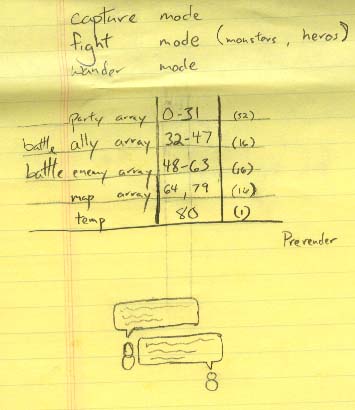 capture mode
fight mode (monsters, heros)
wander mode
party array 0-31 (32)
battle ally array 32-47 (16)
battle enemy array 48-63 (16)
map array 64, 79 (16)
temp 80 (1)
Prerender